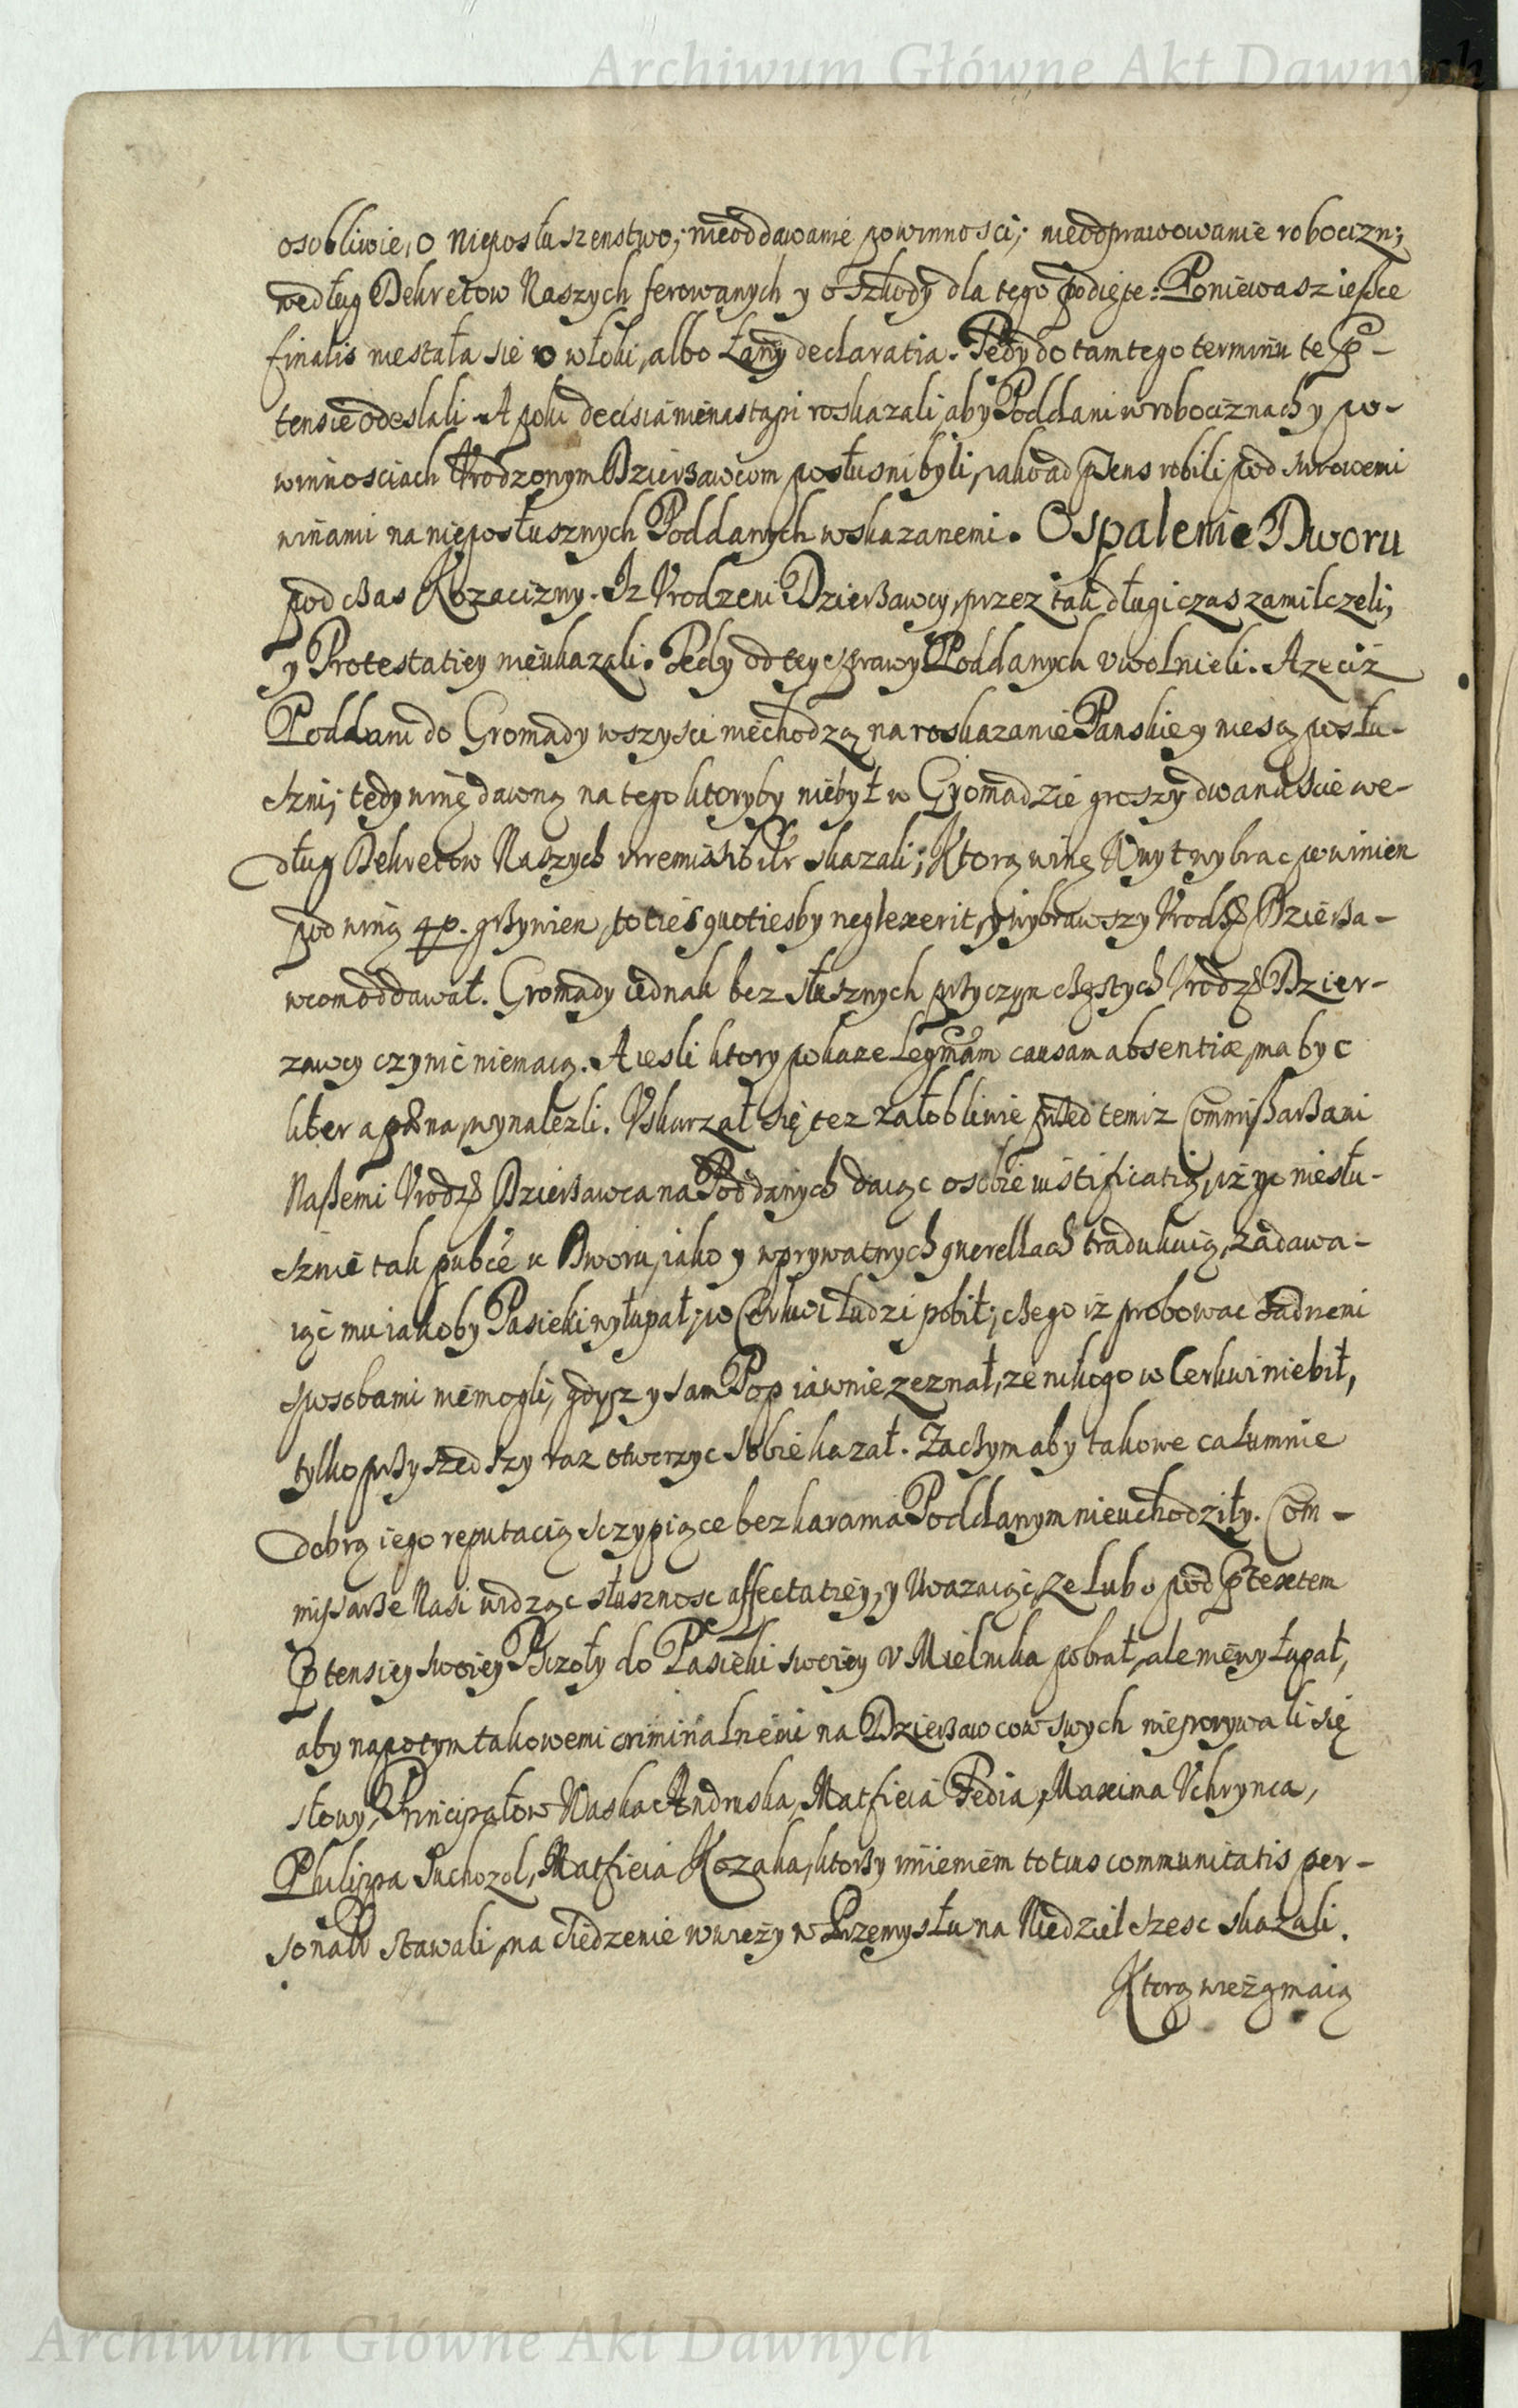 Archiwum Główne Akt Dawnych
osobliwie, o nieposłuszenstwo; nieoddawanie powinnosci; nieodprawowanie robocizn;
według Dekretow Naszych ferowanych y o szkody dla tego podięte: Poniewasz ieszcze
finalis niestała sie o włoki, albo Łany declaratia. Tedy do tamtego terminu te p̃-
tensie odesłali. A poki decisia nienastąpi roskazali, aby Poddani w robociznach y po-
winnosciach Vrodzonym Dzierżawcom posłuszni byli, iako ad p̃sens robili pod surowemi
winami na nieposłusznych Poddanych wskazanemi. O Spalenie Dworu
pod czas Kozacizny. Iz Vrodzeni Dzierżawcy, przez tak długi czas zamilczeli,
y Protestatiey nieukazali. Tedy od tey sprawy Poddanych vwolnieli. A ze ciż
Poddani do Gromady wszysci niechodzą na roskazanie Panskie y niesą posłu-
szni; tedy winę dawną na tego ktoryby niebył w Gromadzie groszy dwanascie we-
dług Dekretow Naszych skazali; Ktorą winę Woyt wybrac powinien
pod winą grzywien, toties quotiesby neglexerit, y wybrawszy Vrodz Dzierża-
wcom oddawał. Gromady iednak bez słusznych przyczyn częstych Vrodz Dzier-
zawcy czynić niemaią. A iesli ktory pokaze legm̃am causam absentiæ, ma byc
liber a pœna, wynalezli. Vskarzał się tez załobliwie przed temiz Commissarzami
Naszemi Vrodz Dzierżawca na Poddanych daiąc o sobie iustificatią, iż go niesłu-
sznie tak pub̃ce u Dworu, iako y w prywatnych querellach tradukuią, zadawa-
iąc mu iakoby Pasieki wyłupał; w Cerkwi ludzi pobił; czego iż probowac żadnemi
sposobami niemogli, gdysz y sam Pop iawnie zeznał, ze nikogo w Cerkwi niebił,
tylko przyszedszy raz otworzyc sobie kazał. Zaczym aby takowe calumnie
dobrą iego reputacią sczypiące bez karania Poddanym nieuchodziły. Com-
missarze Nasi widząc słusznosc affectatiey, y Uwazaiąc, ze lubo pod p̃textem
p̃tensiey swoiey Pszczoły do Pasieki swoiey v Mielnika pobrał, ale niewyłupał,
aby napotym takowemi criminalnemi na Dzierżawcow swych nieporywali się
słowy, Principałow Waska Andruska, Matfieia Fedia, Maxima Vchrynca,
Philippa Suchozol, Matfieia Kozaka, ktorzy imieniem totius communitatis per-
sonalr stawali, na siedzenie w wieży w Przemyslu na Niedziel szesc skazali.
Ktorą wieżą maią
Archiwum Główne Akt Dawnych